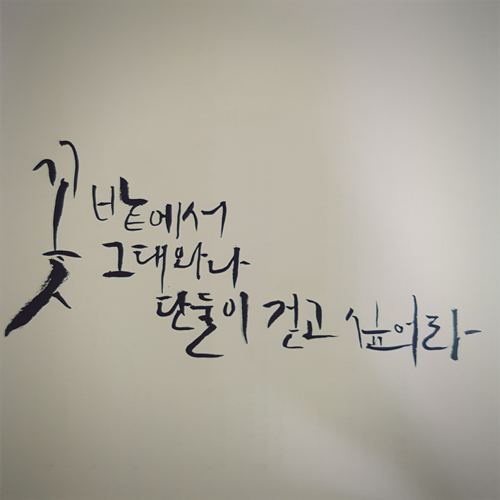 꽃밭에서
그대와나
단둘이 걷고 싶어라